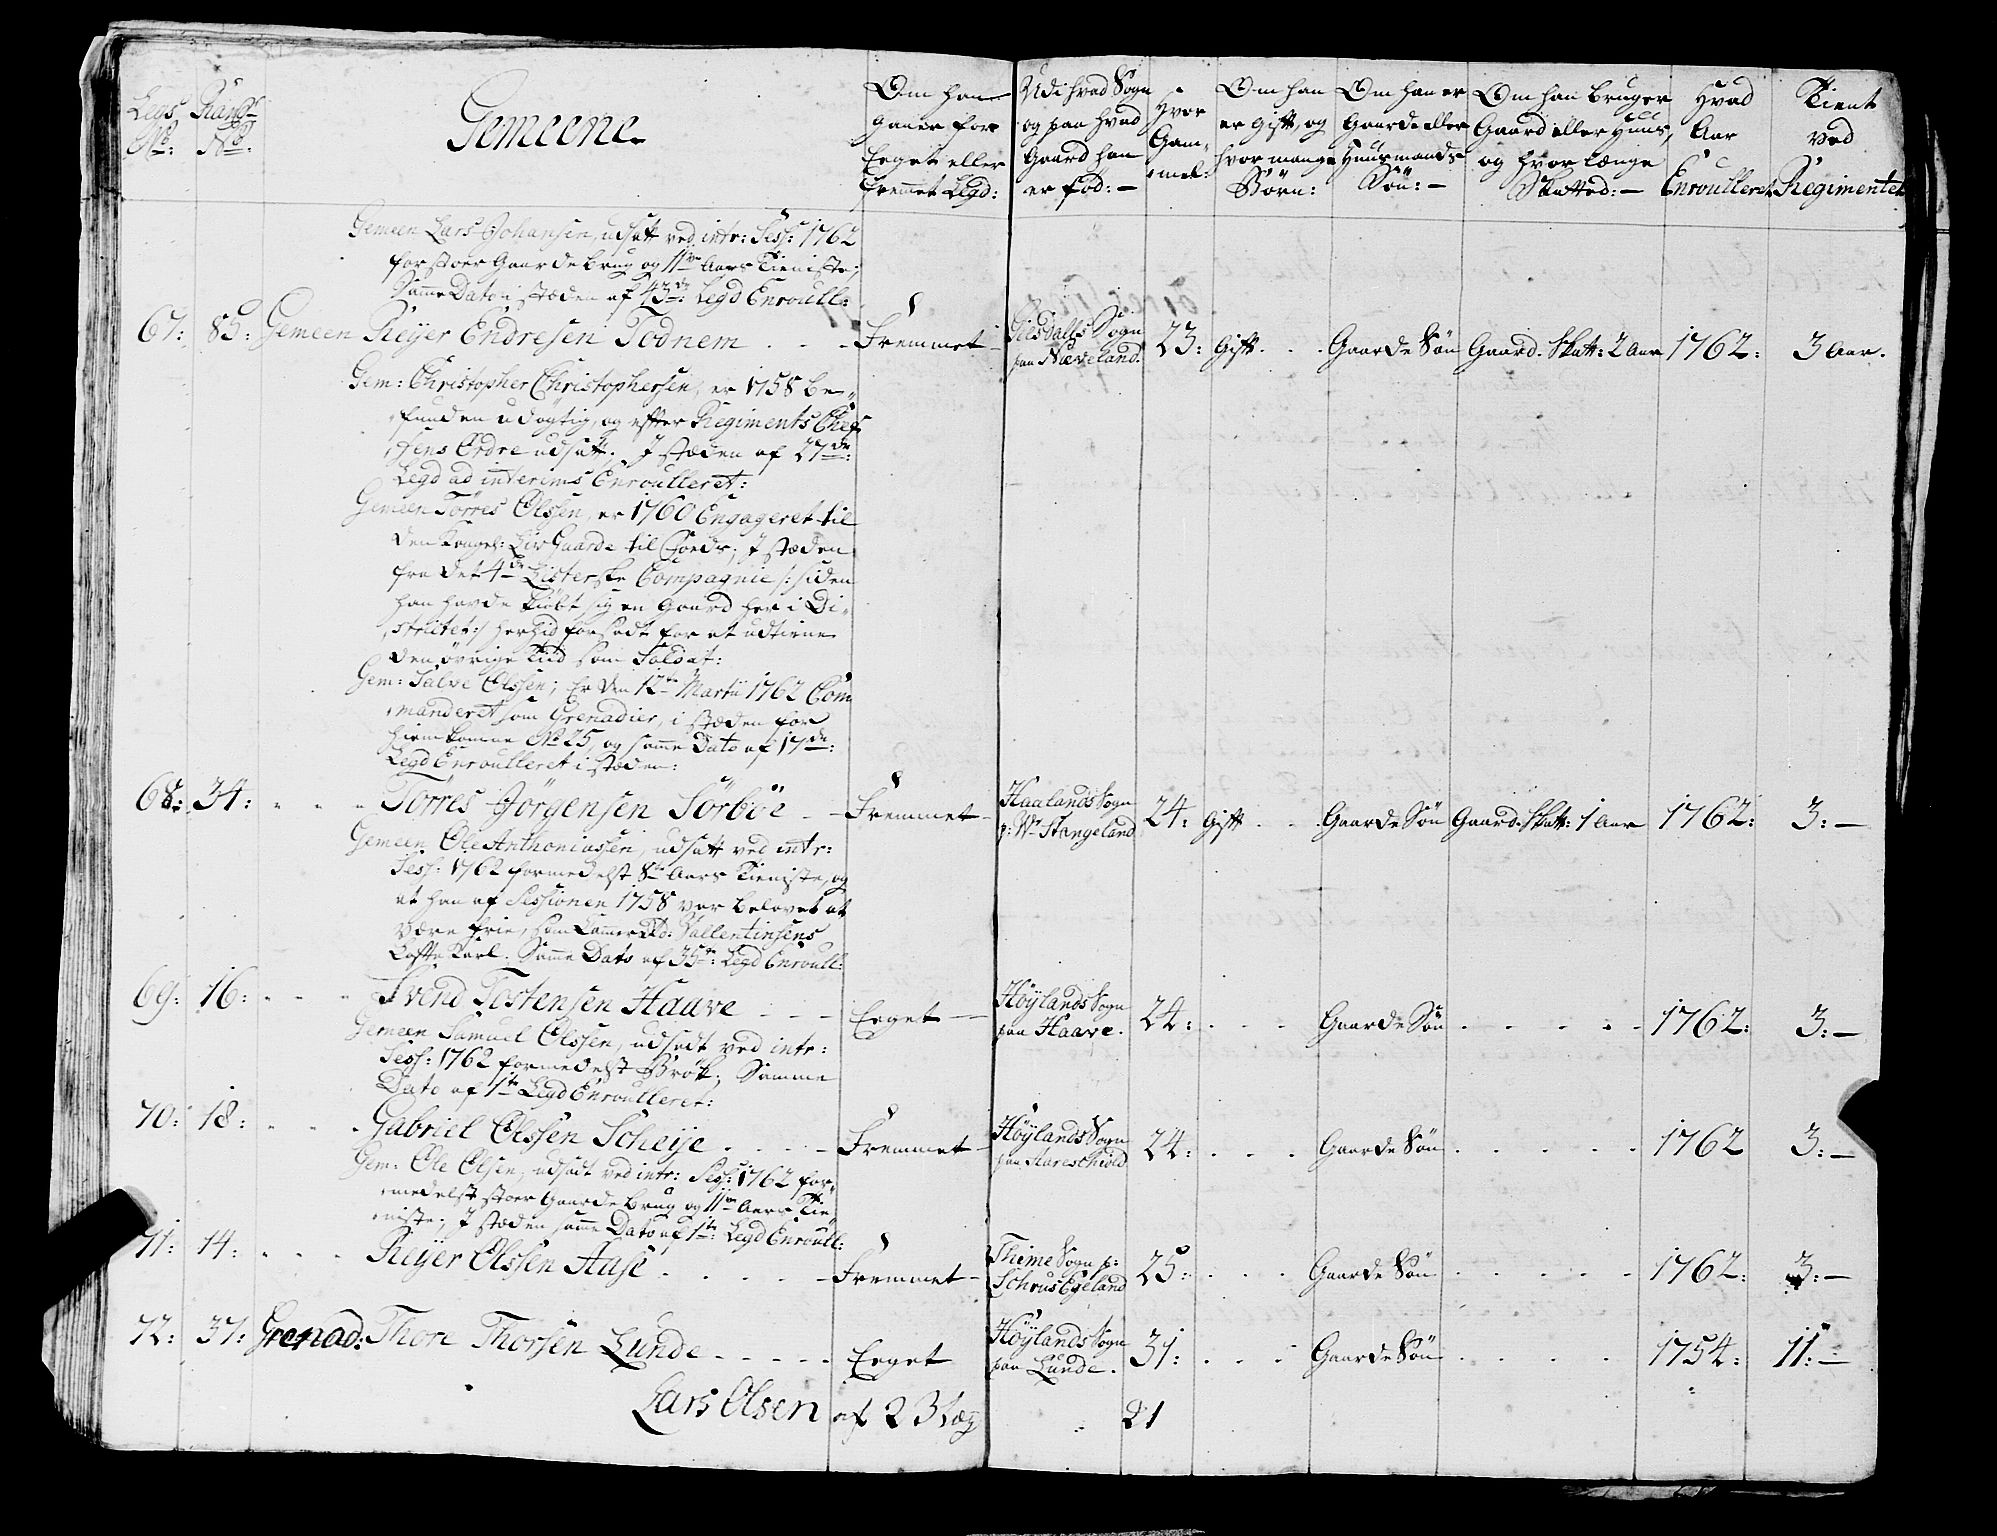 Legs No:
Rang No:
Gemeene
Om han ganer for Eeget eller Fremmet Legd:
Udi hvad Sogn og paa hvad Gaard han er Fød:
Hvor Gammel:
Om han er Gift, og hvor mange Børn:
Om han er Gaards eller Huusmands Søn:
Om han bruger Gaard eller Huus, og hvor længe Skatted:
Hvad Aar Enroulleret
Tient ved Regimentet
Gemeen Lars Johansen, udsatt ved intr: Sess: 1762
for stoer Gaarde brug og 11ve Aars Tieniste;
Samme Dato i stæden af 43de: Legd Enroull:
67: 85: Gemeen Reyer Endresen Todnem - - - Fremmet - Giesdalss Sogn paa Næveland. 23: Gift. - - Gaarde Søn Gaard. Skatt: 2 Aar 1762: 3 Aar.
Gem: Christopher Christophersen, er 1758 be-
funden udøgtig, og effter Regiments Chef-
fens Ordre udsatt; I stæden af 27de:
Legd ad interims Enroulleret:
Gemeen Törres Olssen, er 1760 Engageret til
den Kongel: Liv Guarde til Foeds; I stæden
fra det 4de Listerske Compagnie /: siden
han havde kiøbt sig en Gaard her i Di-
strictet :/ herhid forsadt for at udtiene
den øvrige Tiid som Soldat:
Gem: Salve Olssen; Er den 12te Martii 1762 Com-
manderet som Grenadier, i stæden for
hiemkomne No 25, og samme Dato af 17de:
Legd Enroulleret i stæden:
68: 34: - - - Törres Jörgensen Sörböe - - Fremmet - Haalands Sogn p: Wr Stangeland 24: Gift - - Gaarde Søn Gaard. Skatt: 1 Aar 1762: 3: -
Gemeen Ole Anthoniussen, udsatt ved intr:
Sess: 1762 formedelst 8te Aars Tieniste, og
at han af Sessionen 1758 var belovet at
være frie, som Vallentinsens
Karl. Samme Dato af 35te: Legd Enroull:
69: 16: - - - Svend Tostensen Haave - - - Eeget - Höylands Sogn paa Haave. 24: - - - Gaarde Søn - - - - - 1762: 3: -
Gemeen Samuel Olssen, udsadt ved intr:
Sess: 1762 formedelst Brök; Samme
Dato af 1te Legd Enroulleret:
70: 18: - - - Gabriel Olssen Scheije - - - Fremmet - Höylands Sogn paa Aareschiold 24: - - - Gaarde Søn - - - - - 1762 3: -
Gem: Ole Olsen, udsadt ved intr: Sess: 1762 for-
medelst stoer Gaarde brug og 11ve Aars Tie-
niste; I stæden samme Dato af 1te: Legd Enroull:
71: 14: - - - Reijer Olssen Aase - - - - - Fremmet - Thime Sogn p: Schrus Egeland 25: - - - Gaarde Søn - - - - - 1762: 3: -
72: 37: Grenad: Thore Thorsen Lunde - - - - - Eeget Höylands Sogn paa Lunde. 31: - - - Gaarde Søn - - - - 1754: 11: -
Lars Olsen af 23 læg 21